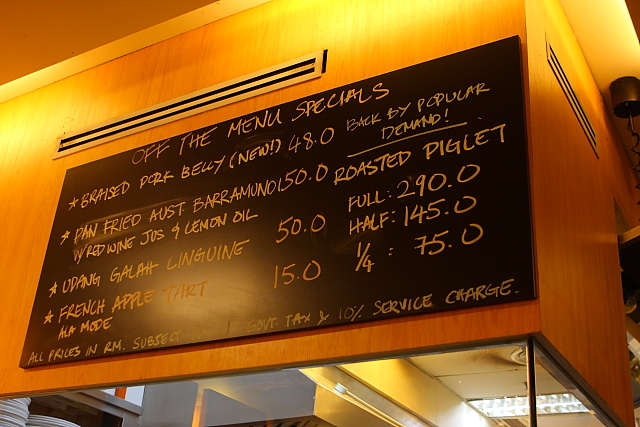 OFF THE MENU SPECIALS
* BRAISED PORK BELLY (NEW!) 48.0
* PAN FRIED AUST. BARRAMUNDI 50.0
W/RED WINE JUS & LEMON OIL
* UDANG GALAH LINGUINE 50.0
* FRENCH APPLE TART 15.0
ALA MODE
BACK BY POPULAR
DEMAND!
ROASTED PIGLET
FULL: 290.0
HALF: 145.0
1/4 : 75.0
ALL PRICES IN RM. SUBJECT GOVT. TAX & 10% SERVICE CHARGE.